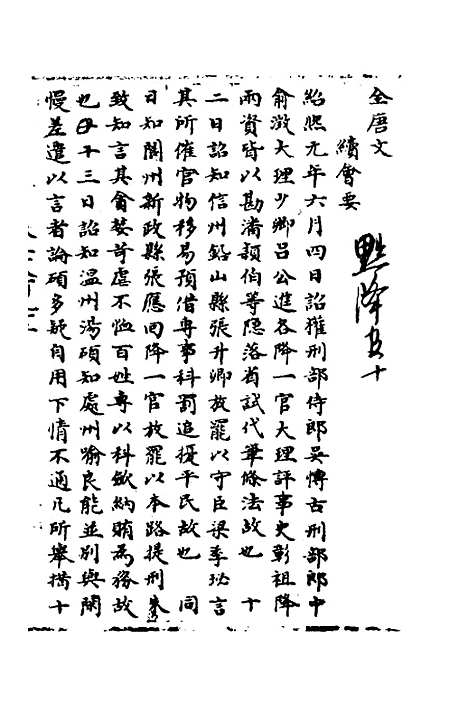 全唐文
續會要
黜降五十
紹熙元年六月四日詔權刑部侍郎吳博古刑部郎中
俞澂大理少卿呂公進各降一官大理評事史彰祖降
兩資皆以勘潘穎伯等隱落省試代筆條法故也 十
二日詔知信州鉛山縣張升卿放罷以守臣梁季珌言
其所催官物移易預借專事科罰追擾平民故也 同
日知閬州新政縣張應回降一官放罷以本路提刑朱
致知言其貪婪苛虐不恤百姓專以科歛納賄為務故
也 十三日詔知温州湯碩知處州喻良能並別與閑
慢差遣以言者論碩多疑自用下情不通凡所舉措十